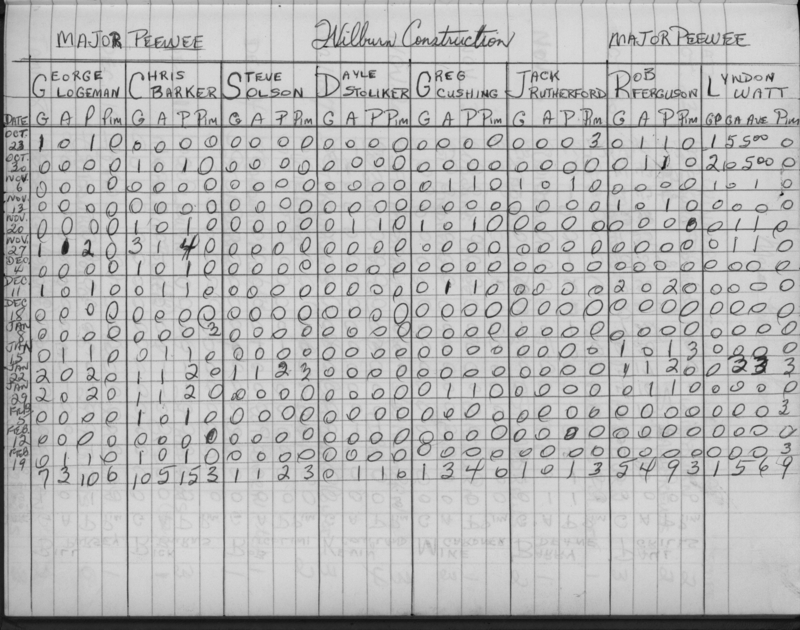 MAJOR PEEWEE Wilburn Construction MAJOR PEEWEE
GEORGE LOGEMAN CHRIS BARKER STEVE OLSON DAYLE STOLIKER GREG CUSHING JACK RUTHERFORD ROB FERGUSON LYNDON WATT
DATE G A P Pim G A P Pim G A P Pim G A P Pim G A P Pim G A P Pim G A P Pim GP GA AVE Pim
OCT. 23 1 0 1 0 0 0 0 0 0 0 0 0 0 0 0 0 0 0 0 0 0 0 0 3 0 1 1 0 1 5 5.00 0
OCT. 30 0 0 0 0 1 0 1 0 0 0 0 0 0 0 0 0 0 0 0 0 0 0 0 0 0 1 1 0 2 10 5.00 0
NOV. 6 0 0 0 0 0 0 0 0 0 0 0 0 0 0 0 0 0 1 1 0 1 0 1 0 0 0 0 0 1 0 1 0
NOV. 13 0 0 0 0 0 0 0 0 0 0 0 0 0 0 0 0 0 0 0 0 0 0 0 0 1 0 1 0 0 0 0 0
NOV. 20 0 0 0 0 1 0 1 0 0 0 0 0 0 1 1 0 1 0 1 0 0 0 0 0 0 0 0 0 0 1 1 0
NOV. 27 1 1 2 0 3 1 4 0 0 0 0 0 0 0 0 0 0 0 0 0 0 0 0 0 0 0 0 0 0 1 1 0
DEC. 4 0 0 0 0 1 0 1 0 0 0 0 0 0 0 0 0 0 0 0 0 0 0 0 0 0 0 0 0 0 0 0 0
DEC. 11 1 0 1 0 0 1 1 0 0 0 0 0 0 0 0 0 0 1 1 0 0 0 0 0 2 0 2 0 0 0 0 0
DEC. 18 0 0 0 0 0 0 0 0 0 0 0 0 0 0 0 0 0 0 0 0 0 0 0 0 0 0 0 0 0 0 0 0
JAN 8 0 0 0 0 0 0 0 3 0 0 0 0 0 0 0 0 0 0 0 0 0 0 0 0 0 0 0 0 0 0 0 0
JAN 15 0 1 1 0 0 1 1 0 0 0 0 0 0 0 0 0 0 0 0 0 0 0 0 0 1 0 1 3 0 0 0 0
JAN 22 2 0 2 0 1 1 2 0 1 1 2 3 0 0 0 0 0 0 0 0 0 0 0 0 1 1 2 0 0 3 3 3
JAN 29 2 0 2 0 1 1 2 0 0 0 0 0 0 0 0 0 0 1 1 0 0 0 0 0 0 1 1 0 0 0 0 0
FEB. 5 0 0 0 0 1 0 1 0 0 0 0 0 0 0 0 0 0 0 0 0 0 0 0 0 0 0 0 0 0 0 0 3
FEB. 12 0 0 0 0 0 0 0 0 0 0 0 0 0 0 0 0 0 0 0 0 0 0 0 0 0 0 0 0 0 0 0 0
FEB 19 0 1 1 0 1 0 1 0 0 0 0 0 0 0 0 0 0 0 0 0 0 0 0 0 0 0 0 0 0 0 0 3
7 3 10 0 10 5 15 3 1 1 2 3 0 1 1 0 1 3 4 0 1 0 1 3 5 4 9 3 1 5 6 9